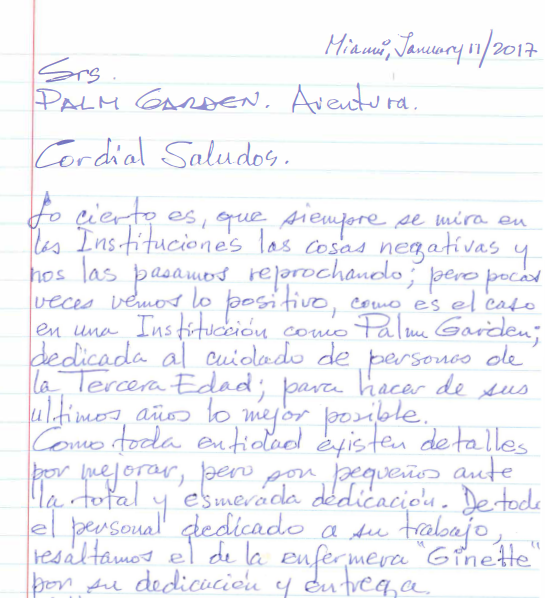 Miami, January 11/2017
Srs.
PALM GARDEN. Aventura.
Cordial Saludos.
Lo cierto es, que siempre se mira en
las Instituciones las cosas negativas y
nos las pasamos reprochando; pero pocas
veces vemos lo positivo, como es el caso
en una Institución como Palm Garden;
dedicada al cuidado de personas de
la Tercera Edad; para hacer de sus
ultimos años lo mejor posible.
Como toda entidad existen detalles
por mejorar, pero son pequeños ante
la total y esmerada dedicación. De todo
el personal dedicado a su trabajo,
resaltamos el de la enfermera "Ginette"
por su dedicación y entrega